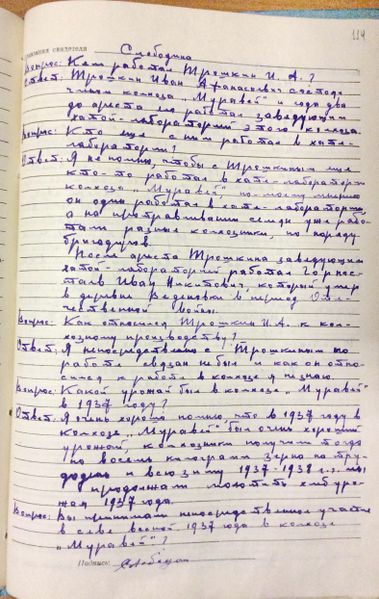 114
показания свидетеля Слободина
Вопрос: Кем работал Трошкин И. А.?
Ответ: Трошкин Иван Афанасьевич
колхоза „Муравей" и года два
до ареста он работал заведующим
хатой-лабораторией этого колхоза.
Вопрос: Кто еще с ним работал в хате-
лаборатории?
Ответ: Я не помню, чтобы с Трошкиным еще
кто-то работал в хате-лаборатории
колхоза „Муравей" по-моему мнению
он один работал в хате-лаборатории,
а на протравливании семян уже рабо-
тали разные колхозники, по наряду
бригадиров.
После ареста Трошкина заведующим
хатой-лабораторией работал Горнос-
таев Иван Никитович, который умер
в деревне в период Оте-
чественной войны.
Вопрос: Как относился Трошкин И.А. к кол-
хозному производству?
Ответ: Я непосредственно с Трошкиным по
работе связан не был и как он отно-
сился к работе в колхозе я не знаю.
Вопрос: Какой урожай был в колхозе „Муравей"
в 1937 году?
Ответ: Я очень хорошо помню, что в 1937 году в
колхозе „Муравей" был очень хороший
урожай, колхозники получили тогда
по восемь килограмм зерна на тру-
додень и всю зиму 1937-1938 г.г. мы
продолжали молотить хлеб уро-
жая 1937 года.
Вопрос: Вы принимали непосредственное участие
в севе весной 1937 года в колхозе
„Муравей"?
Подпись: